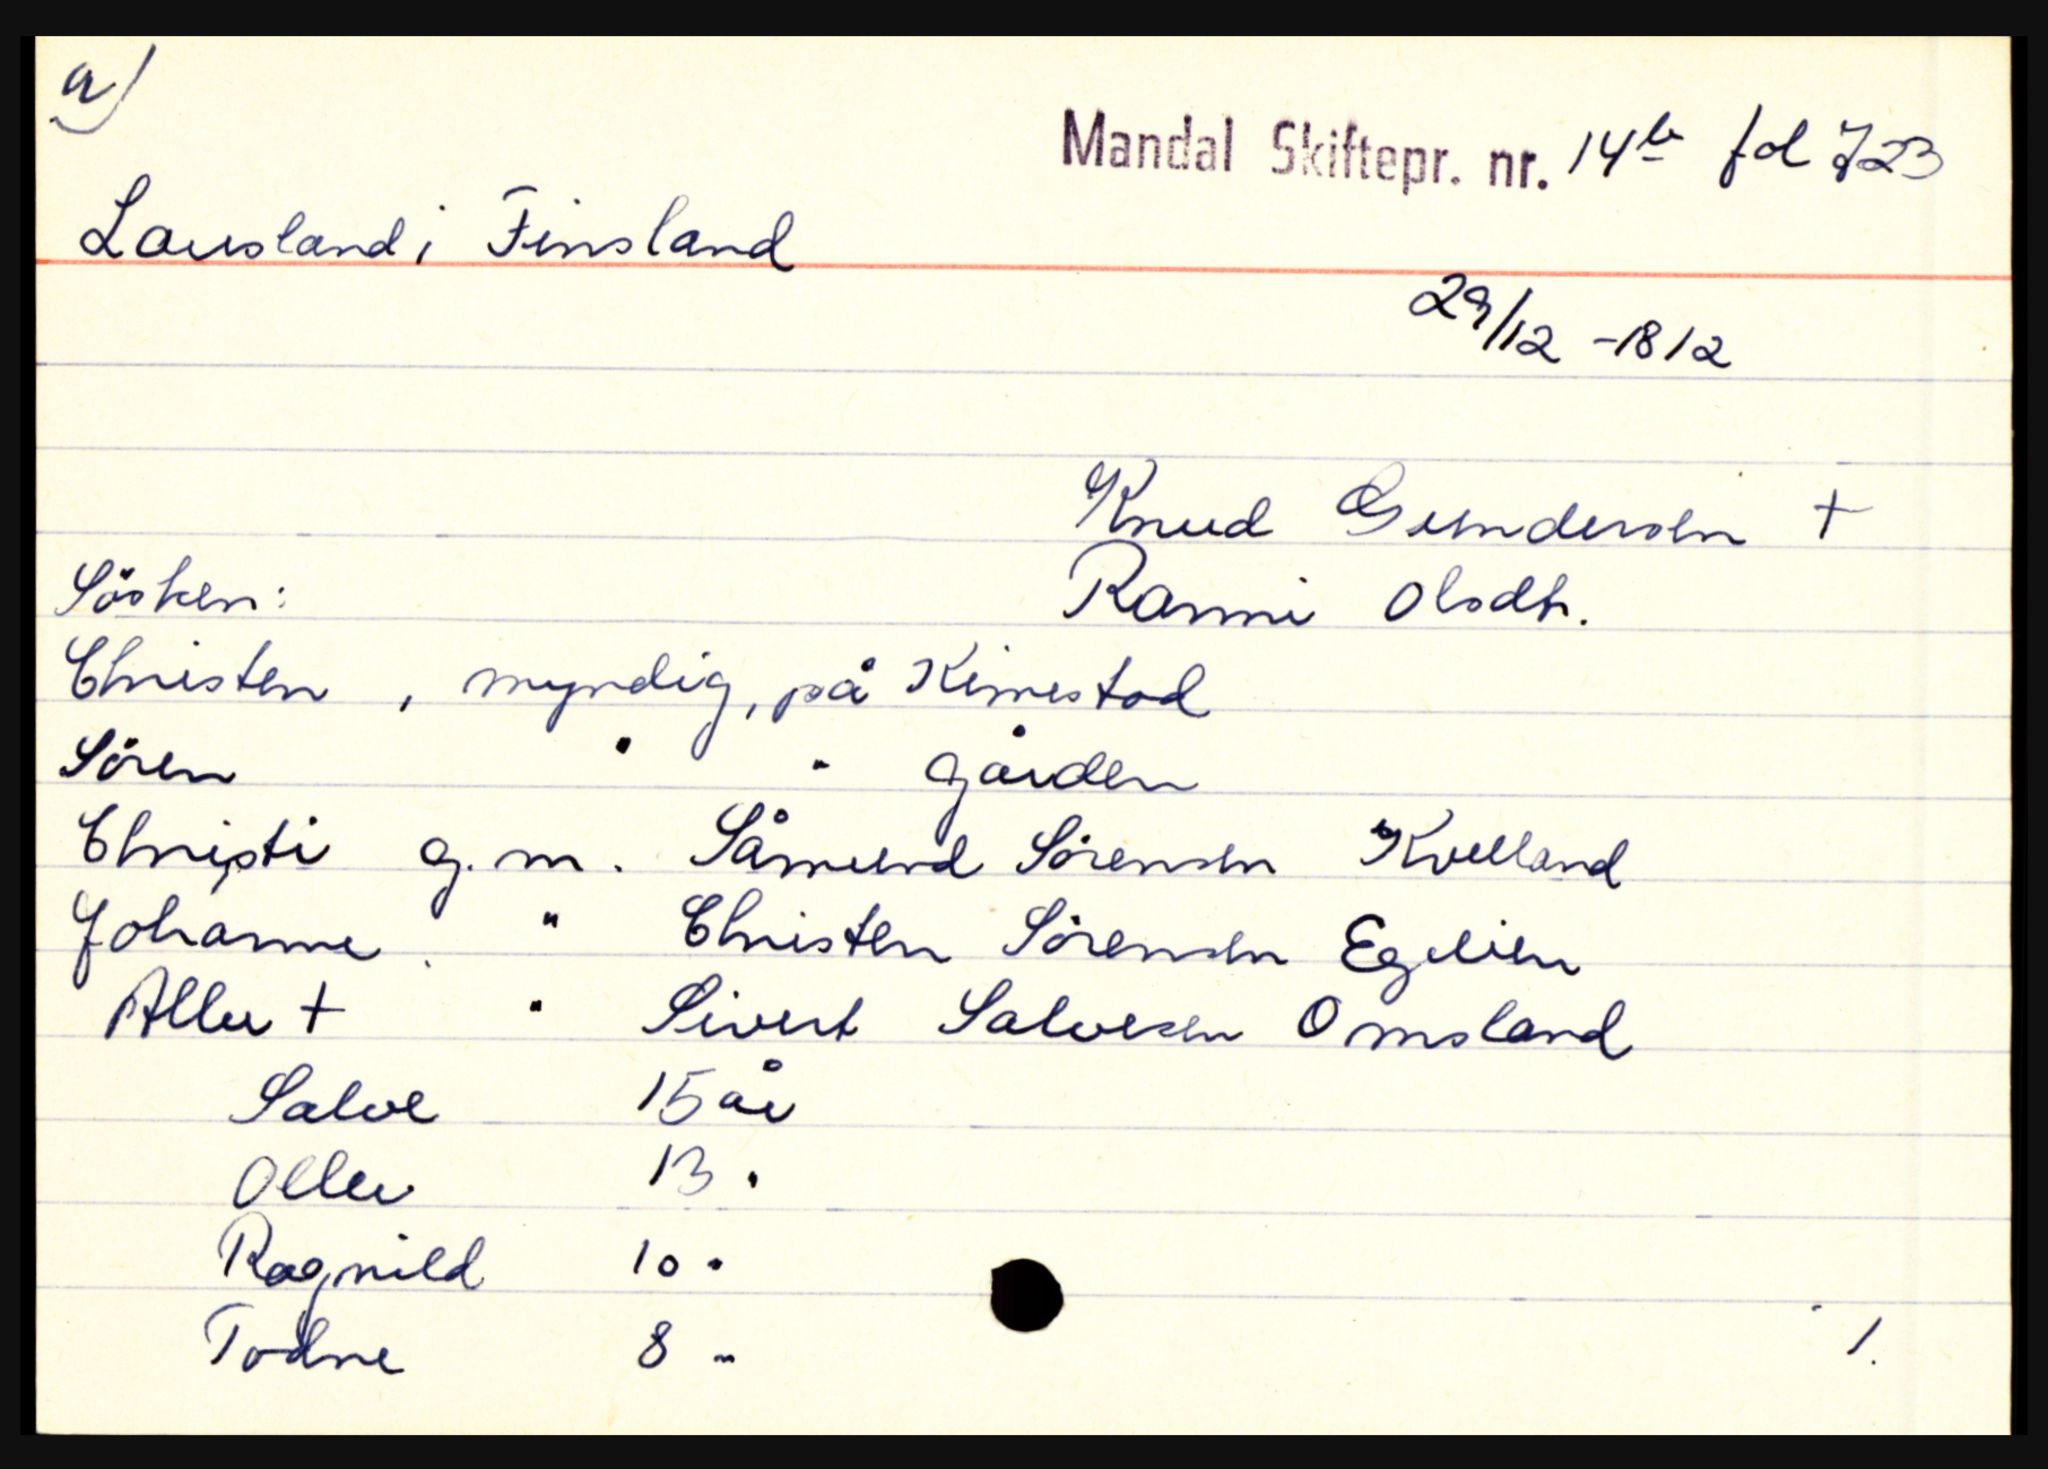 a)
Mandal Skiftepr. nr. 14b fol 723
Lausland i Finsland
29/12 - 1812
Knud Gundersen +
Ranni Olsdtr.
Sösken:
Christen , myndig, på Kimestad
Sören " " gården
Christi g. m. Såmund Sörensen Kvelland
Johanne . " Christen Sörensen Egelien
Aller + " Sivert Salvesen Omsland
Salve 15 år
Oller 13 "
Ragnild 10 "
Todne 8 "
1.